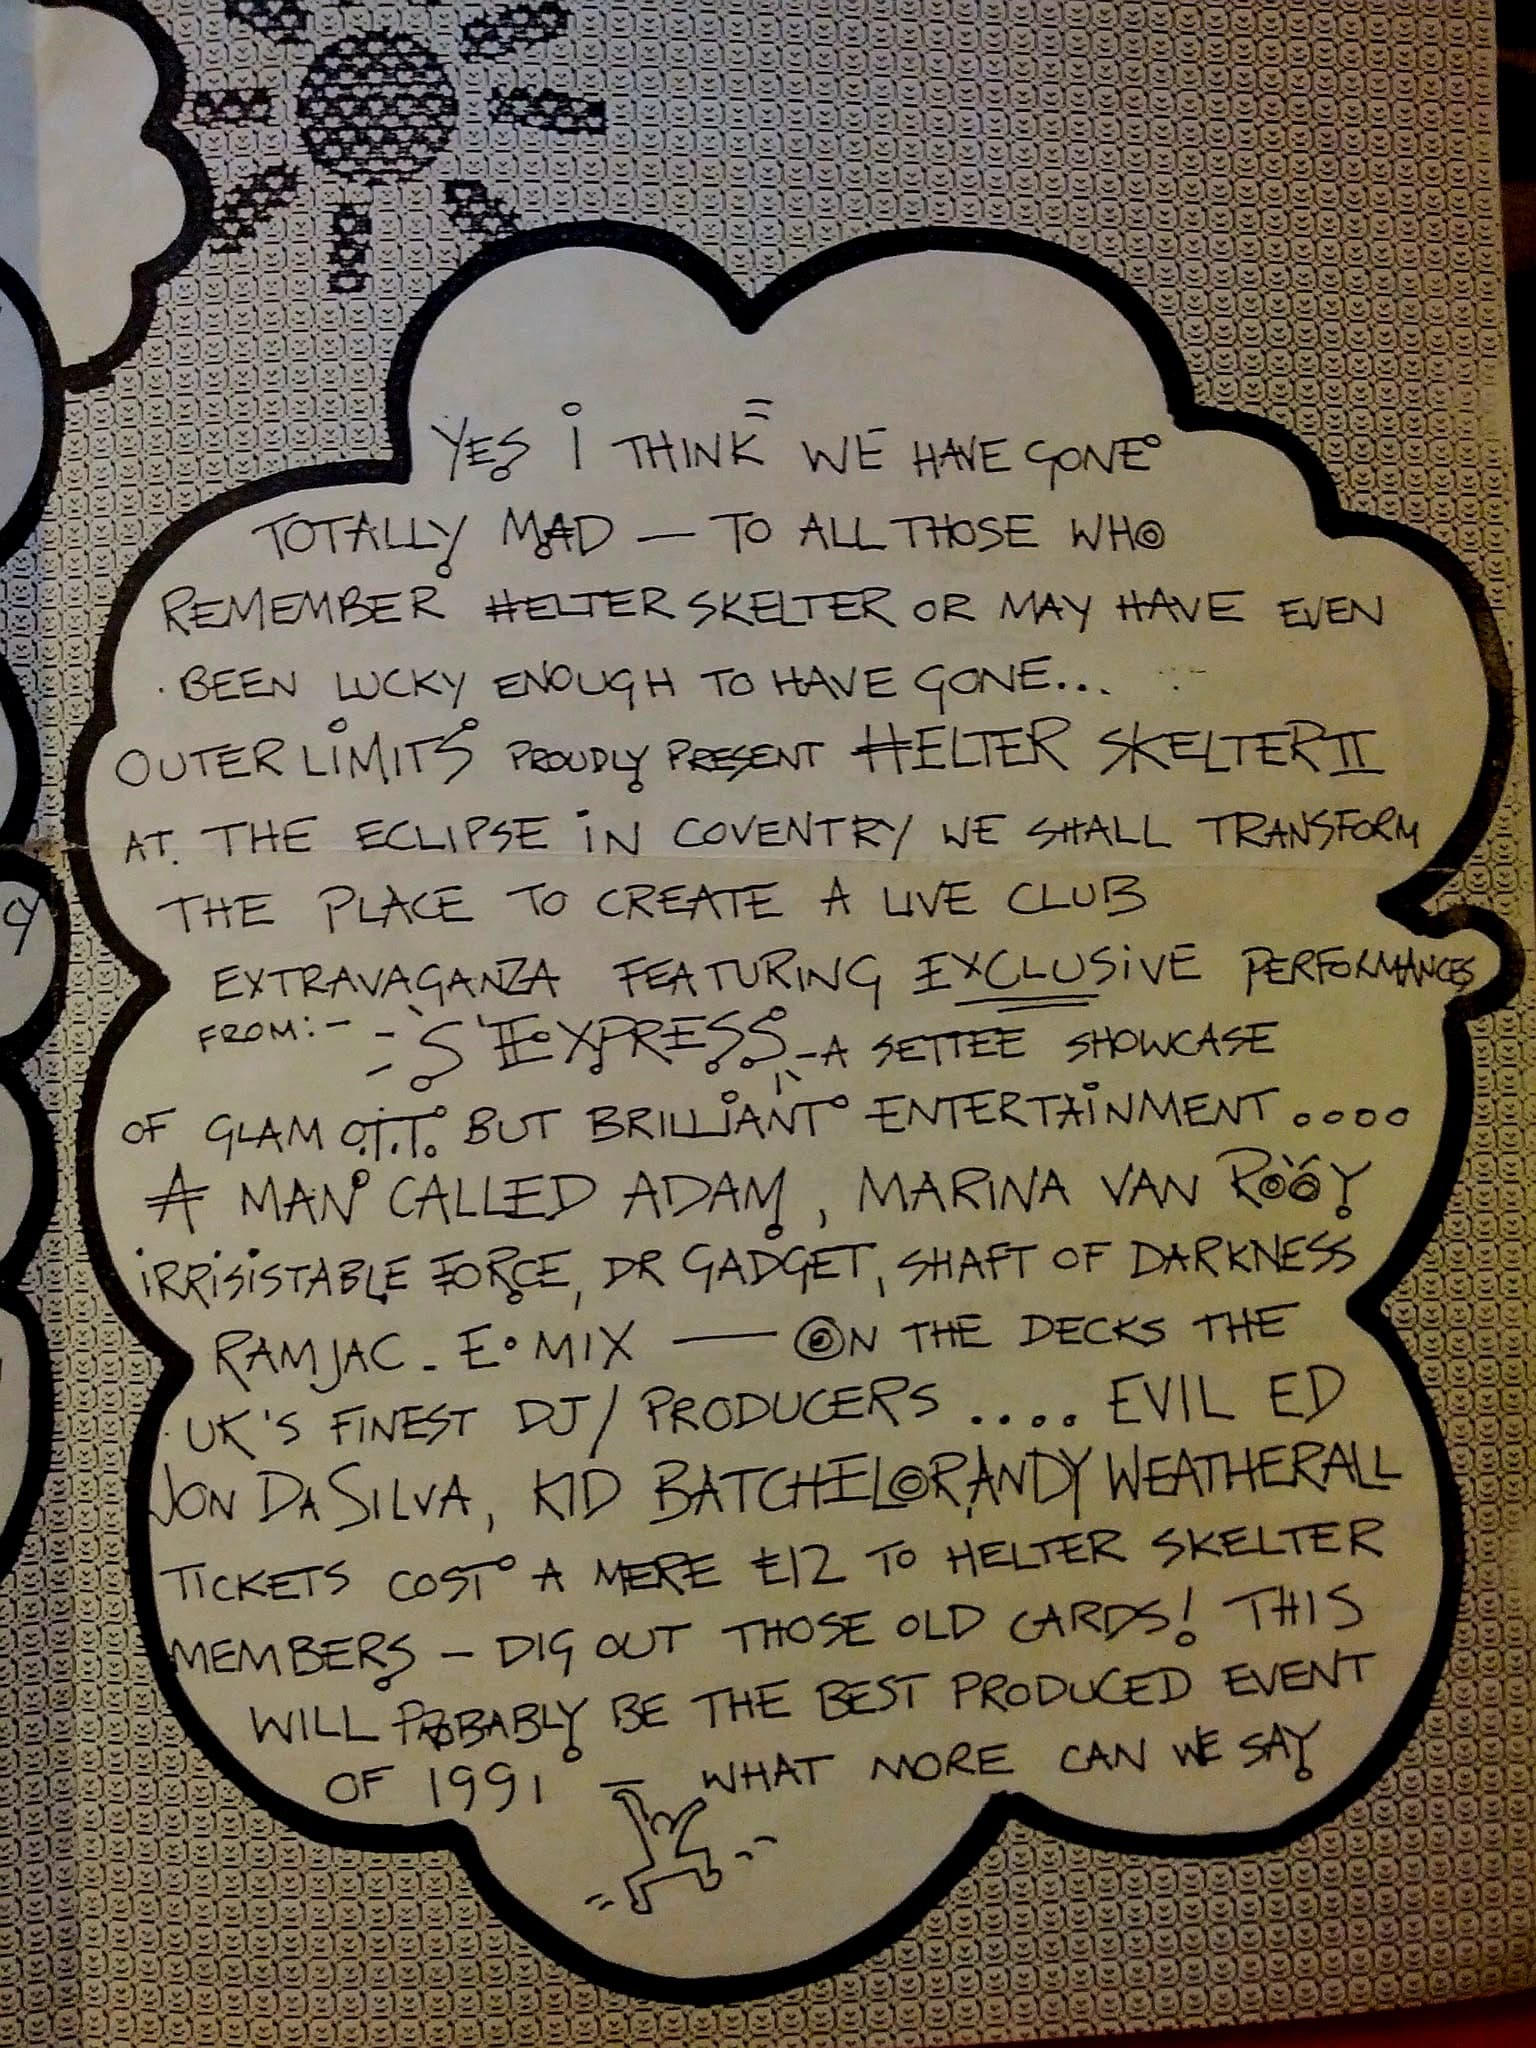 YES I THINK WE HAVE GONE
TOTALLY MAD — TO ALL THOSE WHO
REMEMBER HELTER SKELTER OR MAY HAVE EVEN
BEEN LUCKY ENOUGH TO HAVE GONE...
OUTER LIMITS PROUDLY PRESENT HELTER SKELTER II
AT THE ECLIPSE IN COVENTRY WE SHALL TRANSFORM
THE PLACE TO CREATE A LIVE CLUB
EXTRAVAGANZA FEATURING EXCLUSIVE PERFORMANCES
FROM:- - S'EXPRESS - A SETTEE SHOWCASE
OF GLAM O.T.T. BUT BRILLIANT ENTERTAINMENT....
A MAN CALLED ADAM, MARINA VAN ROOY
IRRISISTABLE FORCE, DR GADGET, SHAFT OF DARKNESS
RAMJAC - E•MIX — ON THE DECKS THE
UK'S FINEST DJ/PRODUCERS .... EVIL ED
JON DASILVA, KID BATCHELOR, ANDY WEATHERALL
TICKETS COST A MERE £12 TO HELTER SKELTER
MEMBERS — DIG OUT THOSE OLD CARDS! THIS
WILL PROBABLY BE THE BEST PRODUCED EVENT
OF 1991 — WHAT MORE CAN WE SAY